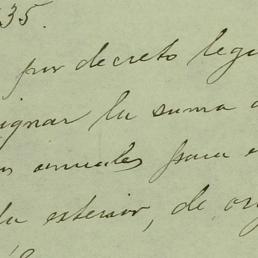 35.
por decreto legi
ignar la suma d
anuales para e
la exterior, de or